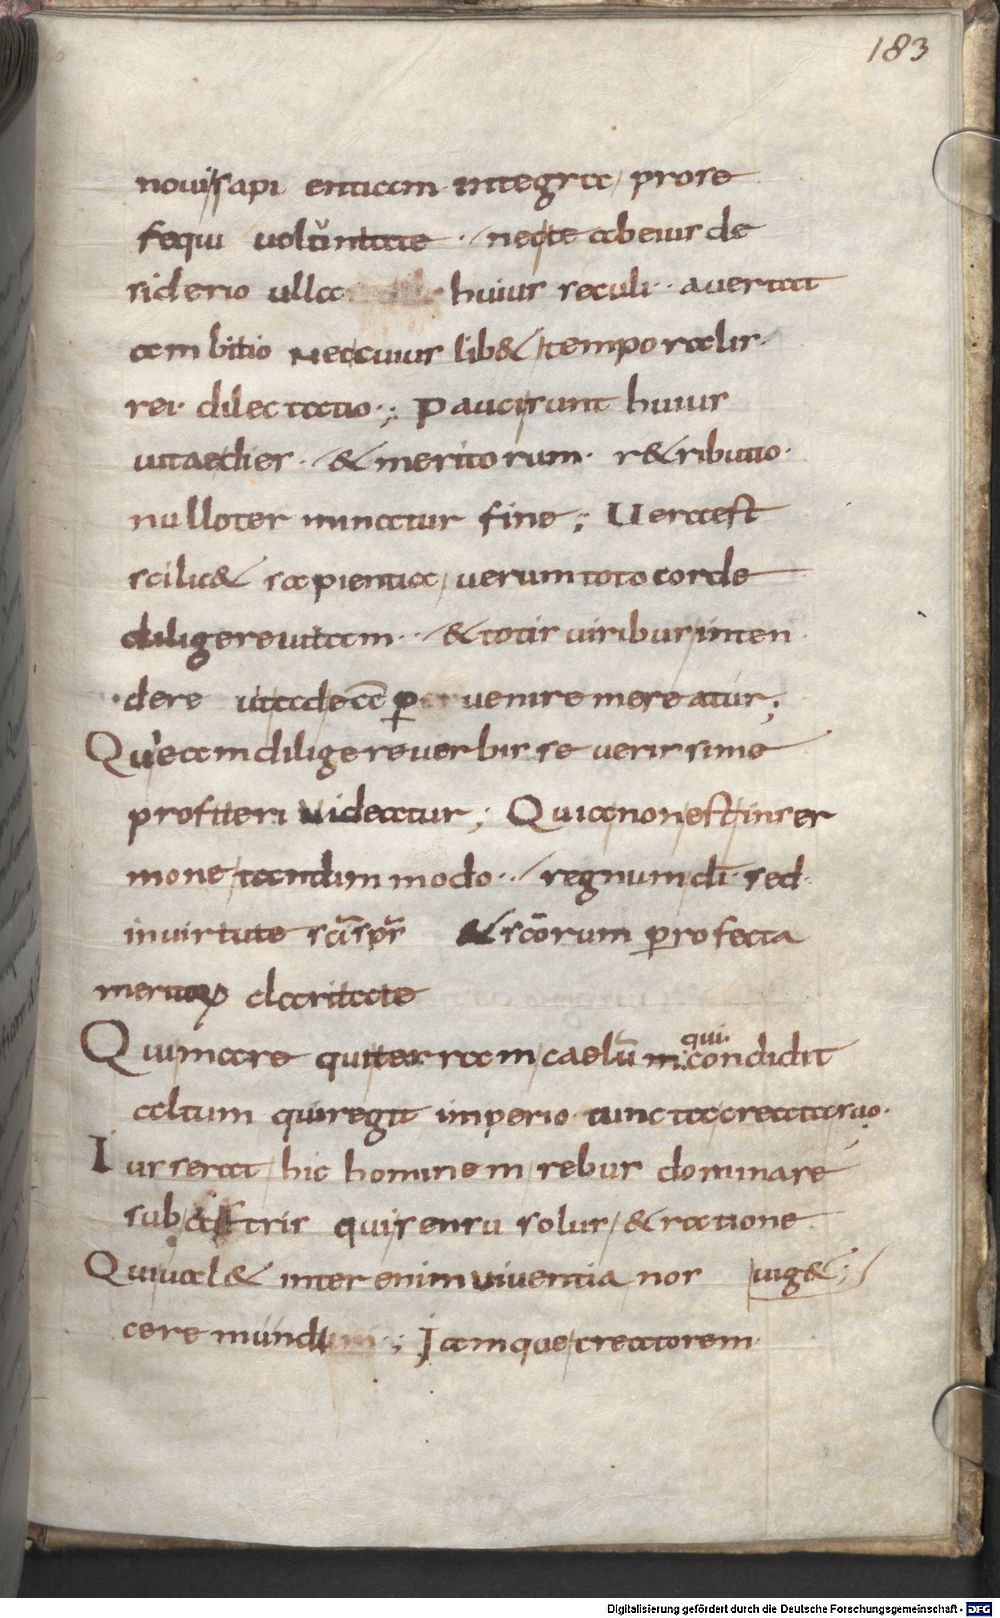 183
noui sapientiam integra prose
sequi voluntate · nec te ab eius de
siderio ulla huius seculi · avertat
ambitio Nec cuius lib& temporalis
rei · dilectatio ·; Pauci sunt huius
vitae dies · & meritorum · r&ributio ·
nullo ter minatur fine ; Uera est
scilic& sapientia verum toto corde
diligere vitam · & totis viribus inten
dere ut ad eā p venire mereatur ;
Que am diligere verbis se verissime
profiteri videatur ; Quia non est in ser
mone tandum modo · regnum dī sed
in virtute scī sps̄ & scōrum profecta
meritorum claritate
Qui mare qui terram caelū m qui condidit
altum qui regit imperio cuncta creata suo ·
Iusserat hic hominem rebus dominare
sub astris qui sensu solus & ratione
Qui val& inter enim viventia nos vig& ;
cere mundum ; Iamque creatorem
Digitalisierung gefördert durch die Deutsche Forschungsgemeinschaft - DFG